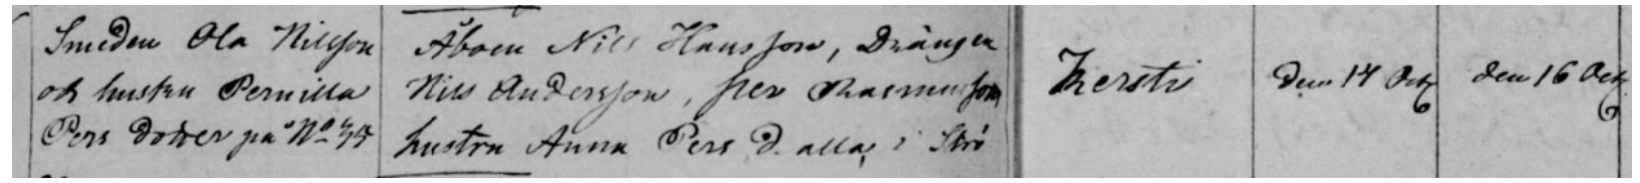 Smeden Ola Nilsson
och hustru Pernilla
Pers dotter på No
Åboen Nils Hansson, Drängen
Nils Andersson, Per Rasmusson,
hustru Anna Pers d. alla i Strö
Kersti
den 14 Oct
den 16 Oct